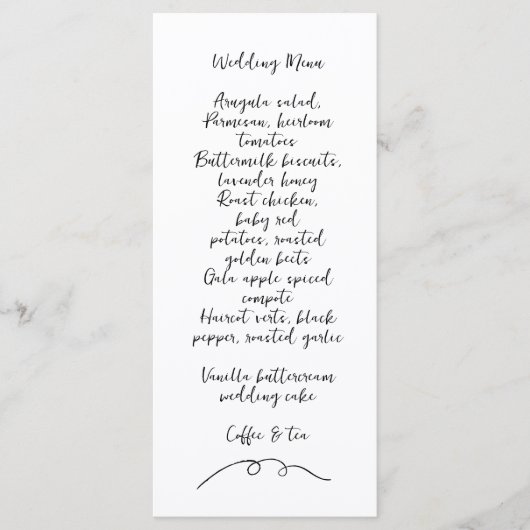 Wedding Menu
Arugula salad,
Parmesan, heirloom
tomatoes
Buttermilk biscuits,
lavender honey
Roast chicken,
baby red
potatoes, roasted
golden beets
Gala apple spiced
compote
Haircot verts, black
pepper, roasted garlic
Vanilla buttercream
wedding cake
Coffee & tea